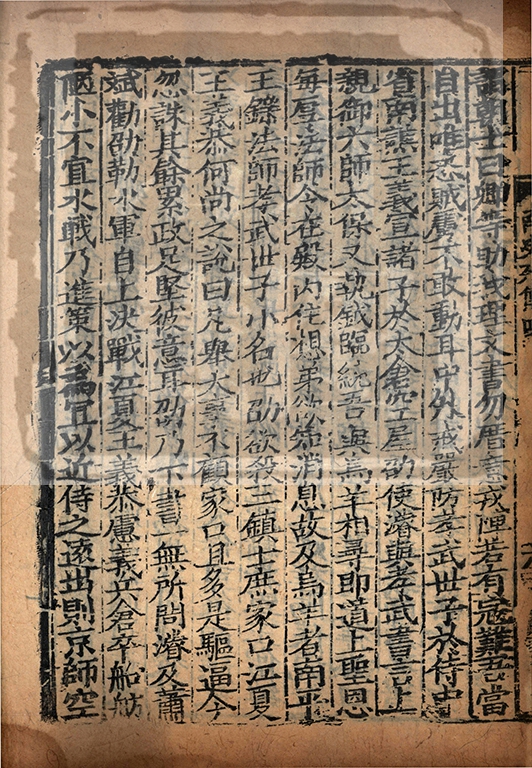 語朝士曰卿等助我理文書勿厝意戎陣若有冦難吾當
自出唯恐賊虜不敢動耳中外戒嚴防孝武世子於侍中
省南譙王義宣諸子於太倉空屋劭使濬與孝武書言上
親御六師太保又執鉞臨統吾與烏羊相尋即道上聖恩
每厚法師今在殿内住想弟欲知消息故及烏羊者南平
王鑠法師孝武世子小名也劭欲殺三鎮士庶家口江夏
王義恭何尚之說曰凡舉大事不顧家口且多是驅逼今
忽誅其餘累政足堅彼意耳劭乃下書一無所問濬及蕭
斌勸劭勒水軍自上決戰江夏王義恭慮義兵倉卒船舫
陋小不宜水戰乃進策以為宜以近侍之遠出則京師空